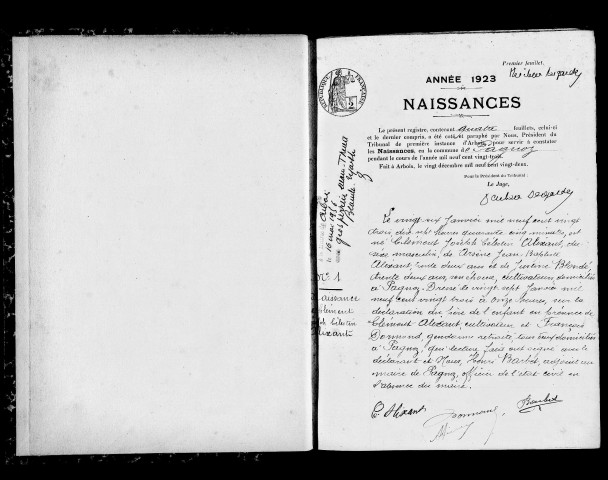 Premier feuillet.
ANNÉE 1923
NAISSANCES
Le présent registre, contenant quatre feuillets, celui-ci
et le dernier compris, a été coté et paraphé par Nous, Président du
Tribunal de première instance d'Arbois, pour servir à constater
les Naissances, en la commune de Pagnoz
pendant le cours de l'année mil neuf cent vingt-trois
Fait à Arbois, le vingt décembre mil neuf cent vingt-deux.
Pour le Président du Tribunal :
Le Juge,
Le vingt six Janvier mil neuf cent vingt
trois, dix huit heures quarante cinq minutes, est
né Clément Joseph Célestin Alixant, du
sexe masculin, de Arsène Jean Baptiste
Alixant, trente deux ans et de Justine Blondé
trente deux ans, son épouse, cultivateurs domiciliés
à Pagnoz. Dressé le vingt sept Janvier mil
neuf cent vingt trois à onze heures, sur la
déclaration du père de l'enfant en présence de
Clément Alixant, cultivateur et François
gendarme retraité, tous deux domiciliés
à Pagnoz, qui lecture faite ont signé avec le
déclarant et Nous, Henri Barbet, adjoint au
maire de Pagnoz, officier de l'état civil en
l'absence du maire.
N° 1
Naissance
Clément
Célestin
Alixant
C. Alixant
Barbet